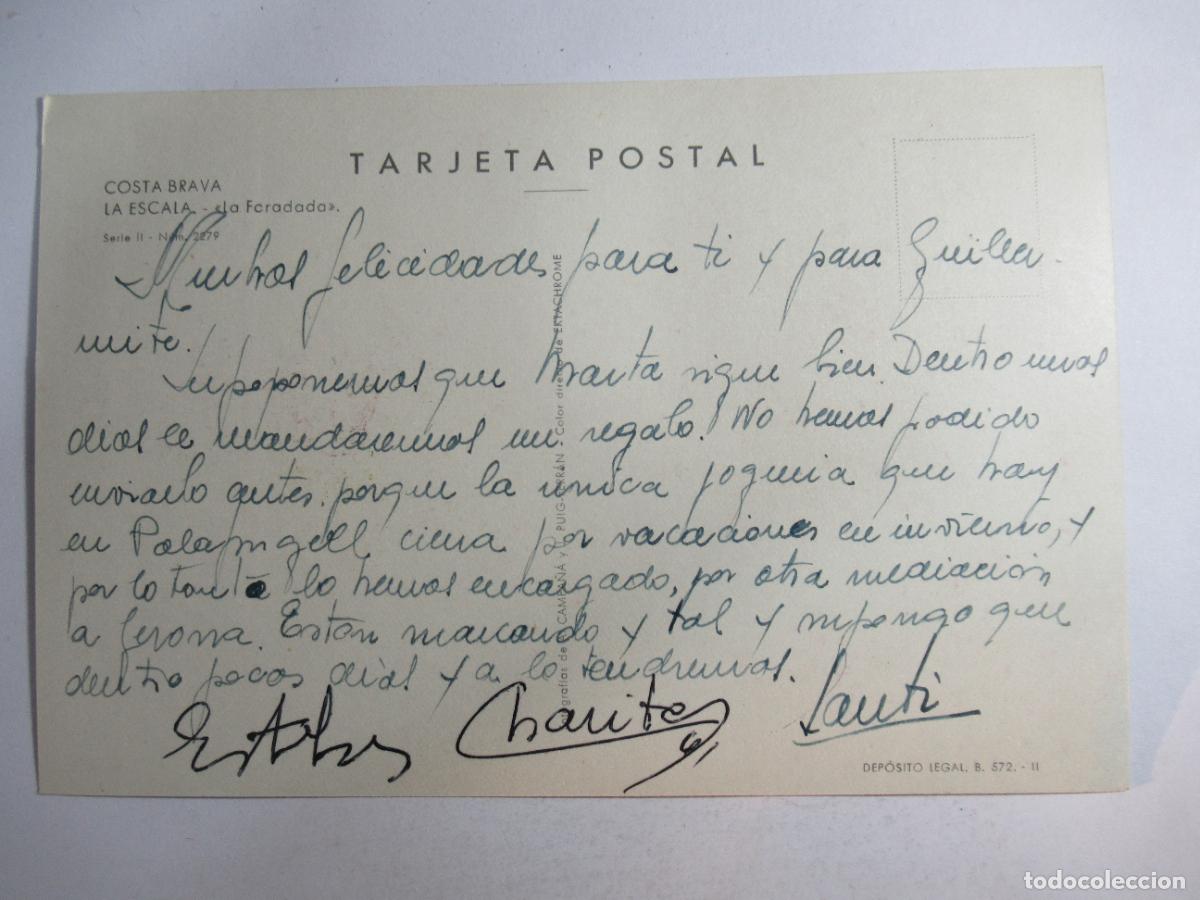 TARJETA POSTAL
COSTA BRAVA
LA ESCALA. - «La Foradada».
Serie II - Núm. 2279
Muchas felicidades para ti y para Guiller-
mito.
Supoponemos que Marta sigue bien. Dentro unos
días le mandaremos un regalo. No hemos podido
enviarlo antes porque la unica joyeria que hay
en Palafrugell cierra por vacaciones en invierno, y
por lo tanto lo hemos encargado, por otra mediación
a Gerona. Están marcando y tal y supongo que
dentro pocos días ya lo tendremos.
Esteban Charito Santi
CAMPAÑA y J. PUIG-FERRÁN - Color directo de EKTACHROME
DEPÓSITO LEGAL. B. 572. - II
todocoleccion